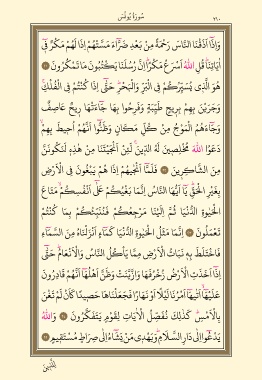 ٢١٠ سُورَةُ يُونُسَ
وَاِذَٓا اَذَقْنَا النَّاسَ رَحْمَةً مِنْ بَعْدِ ضَرَّٓاءَ مَسَّتْهُمْ اِذَا لَهُمْ مَكْرٌ ف۪ٓي
اٰيَاتِنَاۜ قُلِ اللّٰهُ اَسْرَعُ مَكْرًاۜ اِنَّ رُسُلَنَا يَكْتُبُونَ مَا تَمْكُرُونَ ﴿٢١﴾
هُوَ الَّذ۪ي يُسَيِّرُكُمْ فِي الْبَرِّ وَالْبَحْرِۜ حَتّٰٓى اِذَا كُنْتُمْ فِي الْفُلْكِۚ
وَجَرَيْنَ بِهِمْ بِر۪يحٍ طَيِّبَةٍ وَفَرِحُوا بِهَا جَٓاءَتْهَا ر۪يحٌ عَاصِفٌ
وَجَٓاءَهُمُ الْمَوْجُ مِنْ كُلِّ مَكَانٍ وَظَنُّٓوا اَنَّهُمْ اُح۪يطَ بِهِمْۙ
دَعَوُا اللّٰهَ مُخْلِص۪ينَ لَهُ الدّ۪ينَۚ لَئِنْ اَنْجَيْتَنَا مِنْ هٰذِه۪ لَنَكُونَنَّ
مِنَ الشَّاكِر۪ينَ ﴿٢٢﴾ فَلَمَّٓا اَنْجٰيهُمْ اِذَا هُمْ يَبْغُونَ فِي الْاَرْضِ
بِغَيْرِ الْحَقِّۜ يَٓا اَيُّهَا النَّاسُ اِنَّمَا بَغْيُكُمْ عَلٰٓى اَنْفُسِكُمْۙ مَتَاعَ
الْحَيٰوةِ الدُّنْيَاۘ ثُمَّ اِلَيْنَا مَرْجِعُكُمْ فَنُنَبِّئُكُمْ بِمَا كُنْتُمْ
تَعْمَلُونَ ﴿٢٣﴾ اِنَّمَا مَثَلُ الْحَيٰوةِ الدُّنْيَا كَمَٓاءٍ اَنْزَلْنَاهُ مِنَ السَّمَٓاءِ
فَاخْتَلَطَ بِه۪ نَبَاتُ الْاَرْضِ مِمَّا يَأْكُلُ النَّاسُ وَالْاَنْعَامُۜ حَتّٰٓى
اِذَٓا اَخَذَتِ الْاَرْضُ زُخْرُفَهَا وَازَّيَّنَتْ وَظَنَّ اَهْلُهَٓا اَنَّهُمْ قَادِرُونَ
عَلَيْهَٓاۙ اَتٰيهَٓا اَمْرُنَا لَيْلًا اَوْ نَهَارًا فَجَعَلْنَاهَا حَص۪يدًا كَاَنْ لَمْ تَغْنَ
بِالْاَمْسِۜ كَذٰلِكَ نُفَصِّلُ الْاٰيَاتِ لِقَوْمٍ يَتَفَكَّرُونَ ﴿٢٤﴾ وَاللّٰهُ
يَدْعُٓوا اِلٰى دَارِ السَّلَامِۜ وَيَهْد۪ي مَنْ يَشَٓاءُ اِلٰى صِرَاطٍ مُسْتَق۪يمٍ ﴿٢٥﴾
لِلَّذ۪ينَ